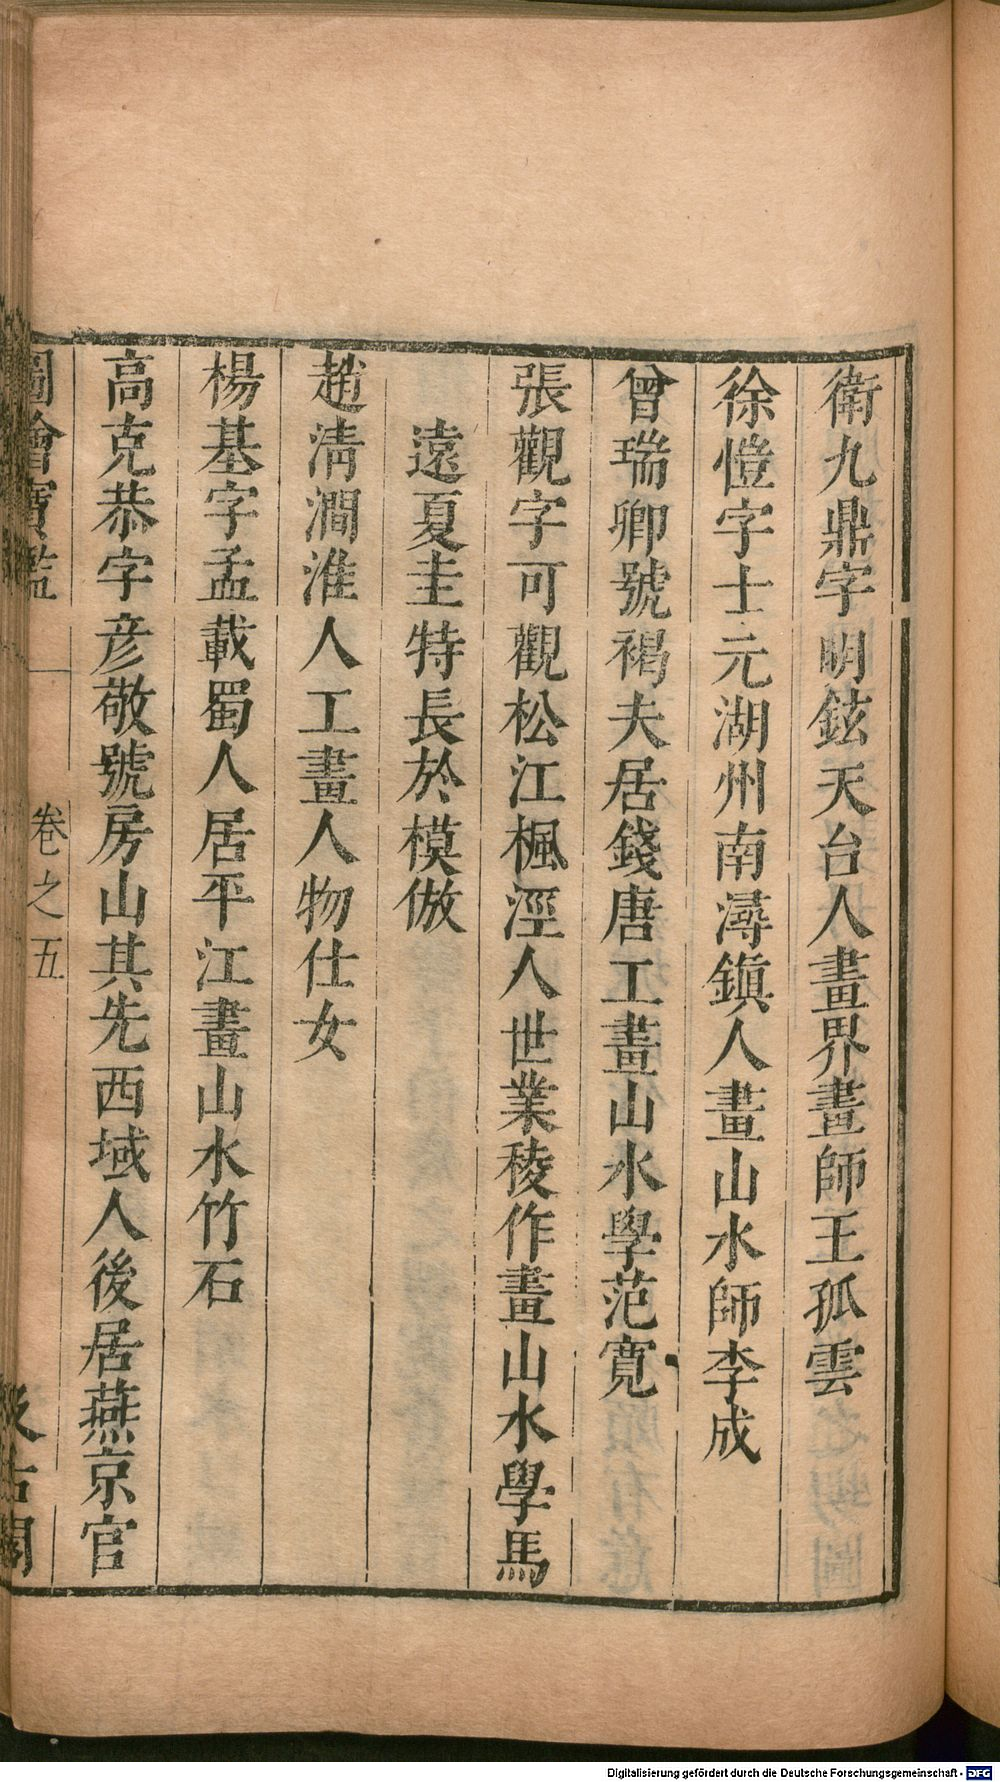 衛九鼎字明鉉天台人畫界畫師王孤雲
徐愷字士元湖州南潯鎮人畫山水師李成
曾瑞卿號褐夫居錢唐工畫山水學范寬
張觀字可觀松江楓涇人世業稜作畫山水學馬
遠夏圭特長於模倣
趙淸澗淮人工畫人物仕女
楊基字孟載蜀人居平江畫山水竹石
高克恭字彦敬號房山其先西域人後居燕京官
圖繪寶鑑 卷之五 汲古閣
Digitalisierung gefördert durch die Deutsche Forschungsgemeinschaft - DFG